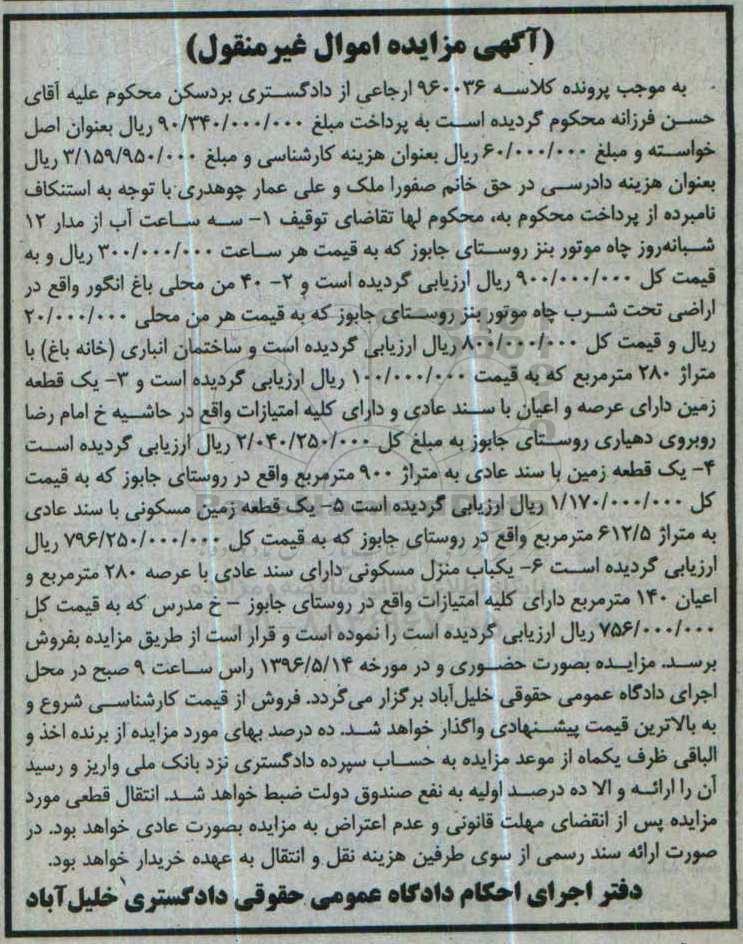 (آگهی مزایده اموال غیرمنقول)
به موجب پرونده کلاسه ۹۶۰۰۳۶ ارجاعی از دادگستری بردسکن محکوم علیه آقای
حسن فرزانه محکوم گردیده است به پرداخت مبلغ ۹۰/۳۴۰/۰۰۰/۰۰۰ ریال بعنوان اصل
خواسته و مبلغ ۶۰/۰۰۰/۰۰۰ ریال بعنوان هزینه کارشناسی و مبلغ ۳/۱۵۹/۹۵۰/۰۰۰ ریال
بعنوان هزینه دادرسی در حق خانم صفورا ملک و علی عمار چوهدری با توجه به استنکاف
نامبرده از پرداخت محکوم به، محکوم لها تقاضای توقیف ۱- سه ساعت آب از مدار ۱۲
شبانه‌روز چاه موتور بنز روستای جابوز که به قیمت هر ساعت ۳۰۰/۰۰۰/۰۰۰ ریال و به
قیمت کل ۹۰۰/۰۰۰/۰۰۰ ریال ارزیابی گردیده است و ۲- ۴۰ من محلی باغ انگور واقع در
اراضی تحت شرب چاه موتور بنز روستای جابوز که به قیمت هر من محلی ۲۰/۰۰۰/۰۰۰
ریال و قیمت کل ۸۰۰/۰۰۰/۰۰۰ ریال ارزیابی گردیده است و ساختمان انباری (خانه باغ) با
متراژ ۲۸۰ مترمربع که به قیمت ۱۰۰/۰۰۰/۰۰۰ ریال ارزیابی گردیده است و ۳- یک قطعه
زمین دارای عرصه و اعیان با سند عادی و دارای کلیه امتیازات واقع در حاشیه خ امام رضا
روبروی دهیاری روستای جابوز به مبلغ کل ۲/۰۴۰/۲۵۰/۰۰۰ ریال ارزیابی گردیده است
۴- یک قطعه زمین با سند عادی به متراژ ۹۰۰ مترمربع واقع در روستای جابوز که به قیمت
کل ۱/۱۷۰/۰۰۰/۰۰۰ ریال ارزیابی گردیده است ۵- یک قطعه زمین مسکونی با سند عادی
به متراژ ۶۱۲/۵ مترمربع واقع در روستای جابوز که به قیمت کل ۷۹۶/۲۵۰/۰۰۰/۰۰۰ ریال
ارزیابی گردیده است ۶- یکباب منزل مسکونی دارای سند عادی با عرصه ۲۸۰ مترمربع و
اعیان ۱۴۰ مترمربع دارای کلیه امتیازات واقع در روستای جابوز - خ مدرس که به قیمت کل
۷۵۶/۰۰۰/۰۰۰ ریال ارزیابی گردیده است را نموده است و قرار است از طریق مزایده بفروش
برسد. مزایده بصورت حضوری و در مورخه ۱۳۹۶/۵/۱۴ راس ساعت ۹ صبح در محل
اجرای دادگاه عمومی حقوقی خلیل‌آباد برگزار می‌گردد. فروش از قیمت کارشناسی شروع و
به بالاترین قیمت پیشنهادی واگذار خواهد شد. ده درصد بهای مورد مزایده از برنده اخذ و
الباقی ظرف یکماه از موعد مزایده به حساب سپرده دادگستری نزد بانک ملی واریز و رسید
آن را ارائه و الا ده درصد اولیه به نفع صندوق دولت ضبط خواهد شد. انتقال قطعی مورد
مزایده پس از انقضای مهلت قانونی و عدم اعتراض به مزایده بصورت عادی خواهد بود. در
صورت ارائه سند رسمی از سوی طرفین هزینه نقل و انتقال به عهده خریدار خواهد بود.
دفتر اجرای احکام دادگاه عمومی حقوقی دادگستری خلیل‌آباد